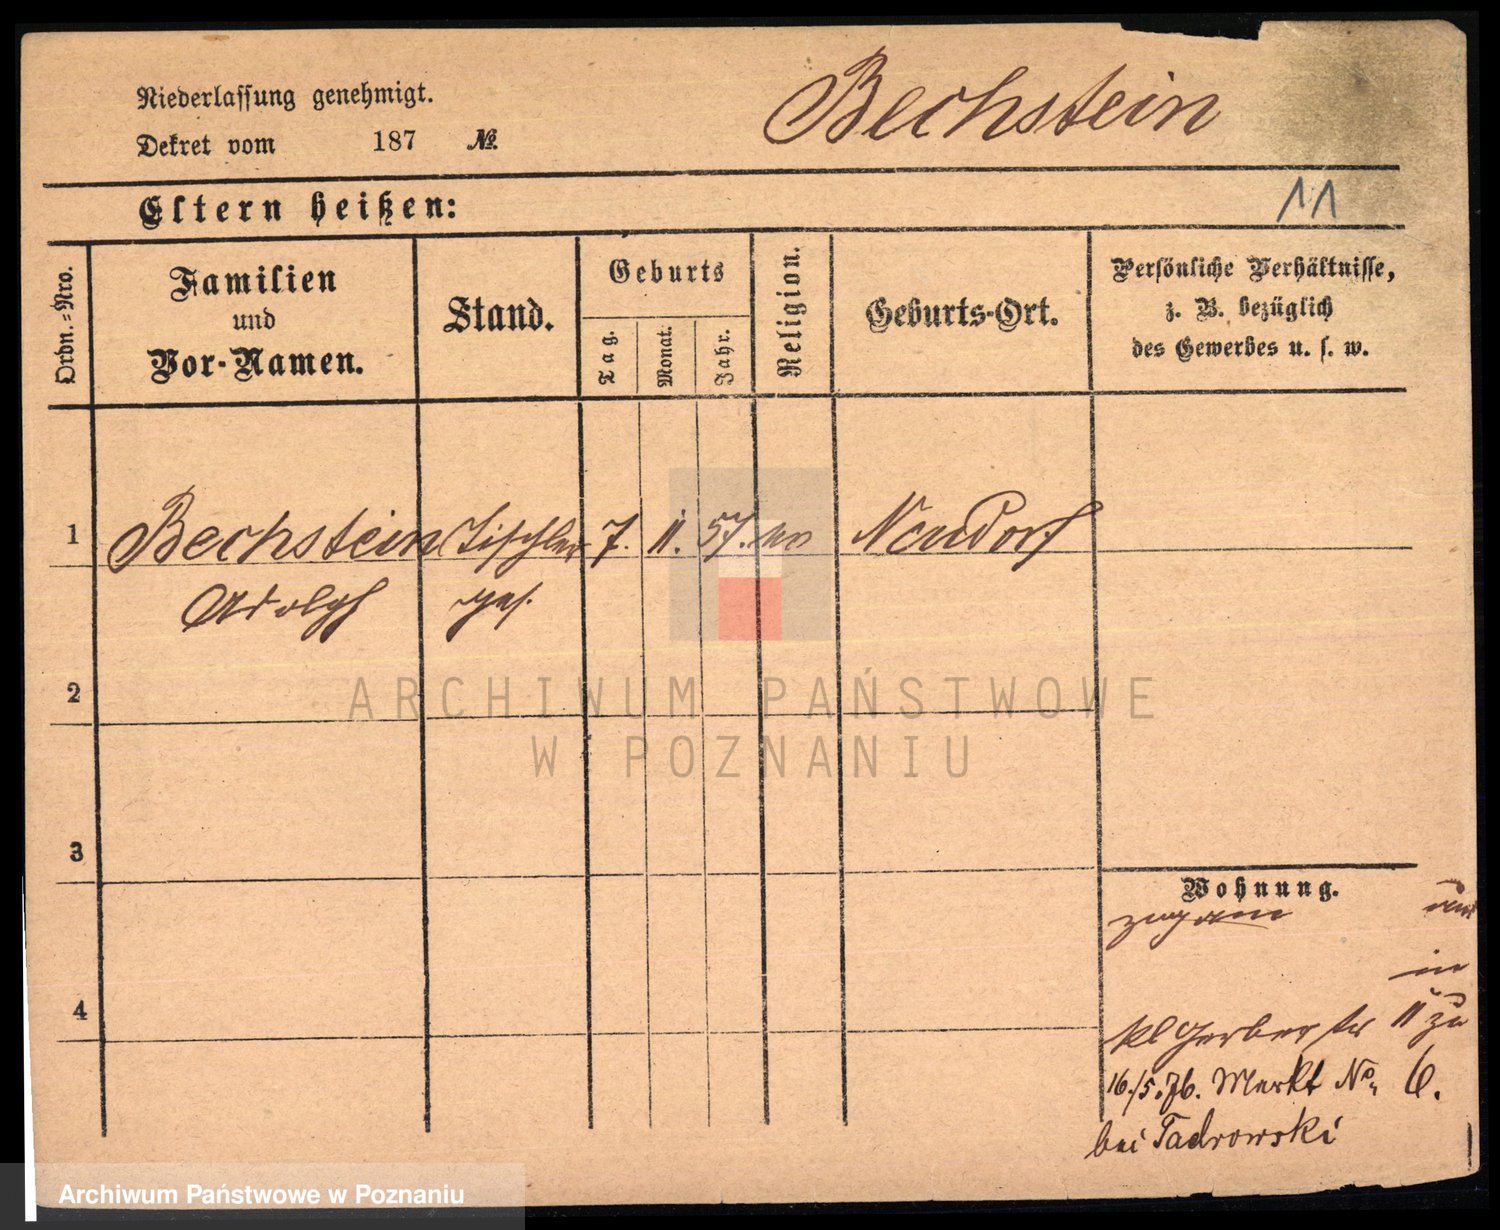 Niederlassung genehmigt.
Bechstein
Dekret vom 187 №.
11
Eltern heißen:
Ordn.=Nro.
Familien
und
Vor-Namen.
Stand.
Geburts
Tag.
Monat.
Jahr.
Religion.
Geburts-Ort.
Persönliche Verhältnisse,
z. B. bezüglich
des Gewerbes u. s. w.
1 Bechstein Tischler 7. 11. 57. Neudorf
Adolph ges.
2
3
4
Wohnung.
in
kl Gerber str 11 zu
16./5.76. Markt No. 6.
bei Tadrowski
ARCHIWUM PAŃSTWOWE
W POZNANIU
Archiwum Państwowe w Poznaniu